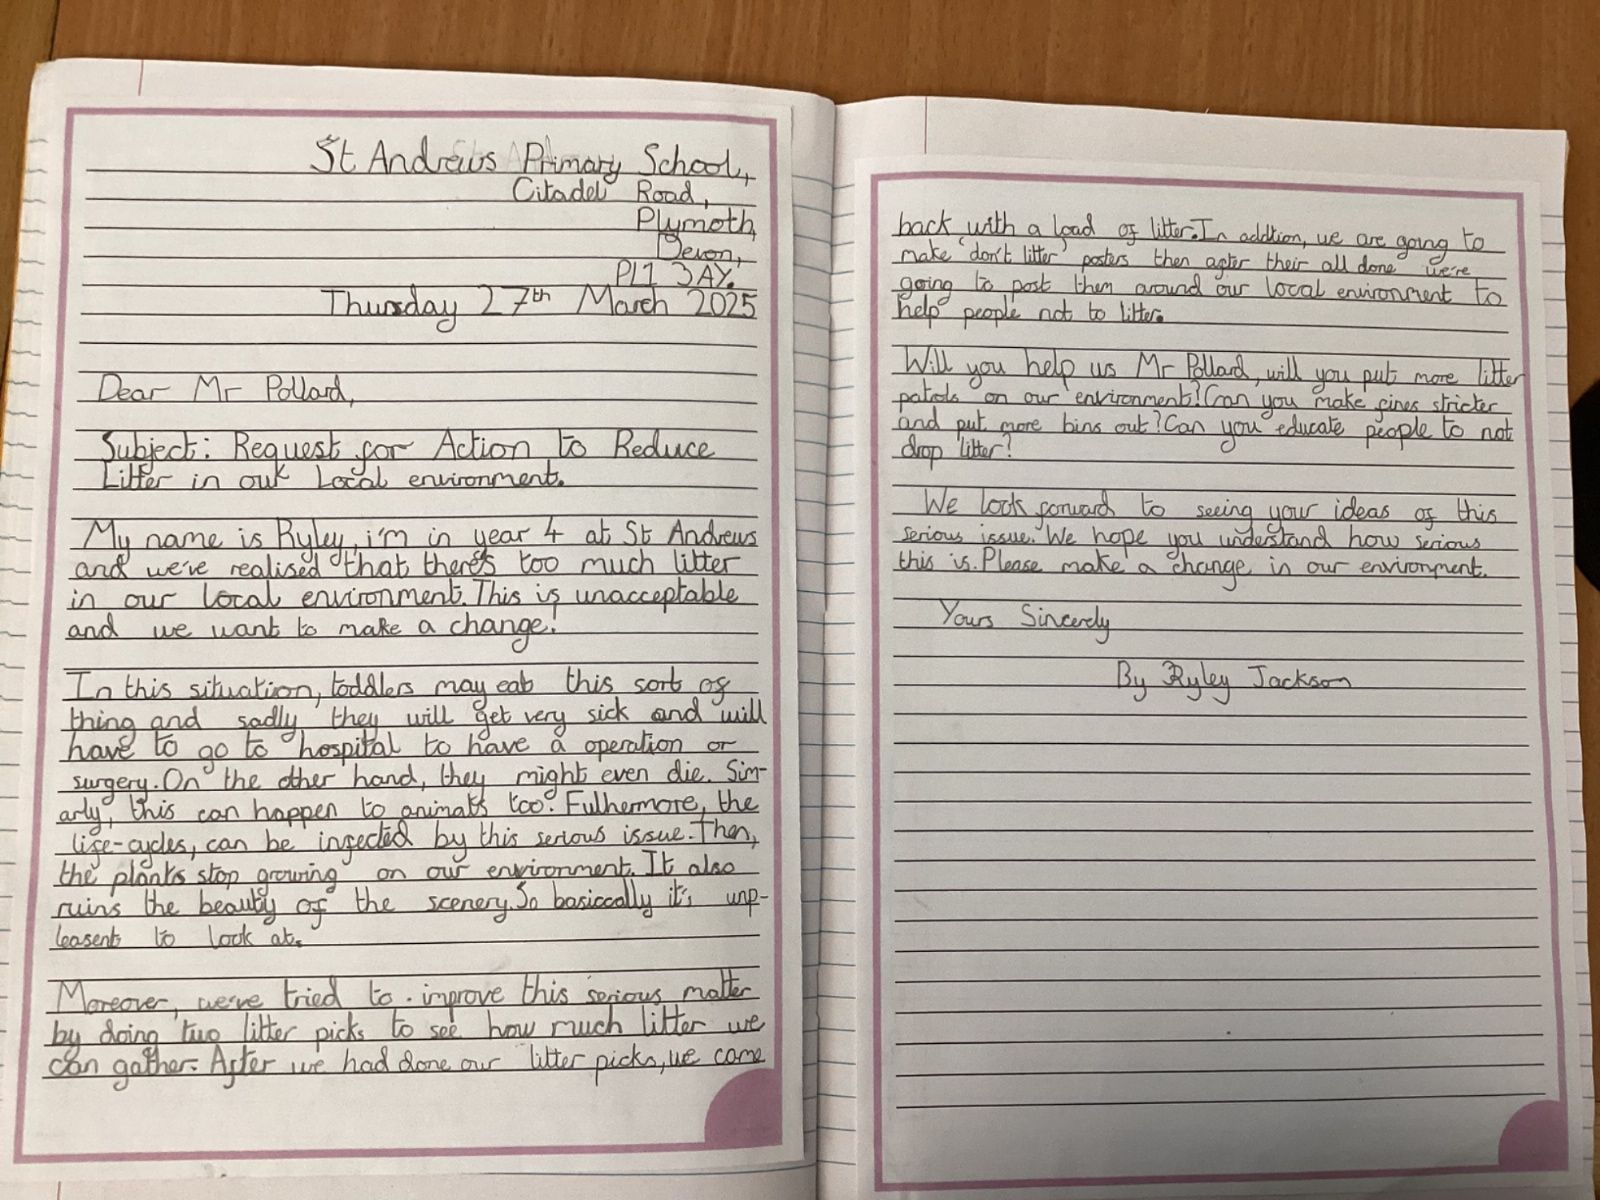 St Andrews Primary School,
Citadel Road,
Plymoth,
Devon,
PL1 3AY.
Thursday 27th March 2025
Dear Mr Pollard,
Subject: Request for Action to Reduce
Litter in our Local environment.
My name is Ryley, i'm in year 4 at St Andrews
and we've realised that there's too much litter
in our local environment. This is unacceptable
and we want to make a change!
In this situation, toddlers may eat this sort of
thing and sadly they will get very sick and will
have to go to hospital to have a operation or
surgery. On the other hand, they might even die. Sim-
arly, this can happen to animals too. Fulhermore, the
life-cycles, can be infected by this serious issue. Then,
the plants stop growing on our environment. It also
ruins the beauty of the scenery. So basiccally it's unp-
leasent to look at.
Moreover, we've tried to improve this serious matter
by doing two litter picks to see how much litter we
can gather. After we had done our litter picks, we came
back with a load of litter. In addtion, we are going to
make 'don't litter' posters then after their all done we're
going to post them around our local environment to
help people not to litter.
Will you help us Mr Pollard, will you put more litter
patrols on our environment? Can you make fines stricter
and put more bins out? Can you educate people to not
drop litter?
We look forward to seeing your ideas of this
serious issue. We hope you understand how serious
this is. Please make a change in our environment.
Yours Sincerely
By Ryley Jackson